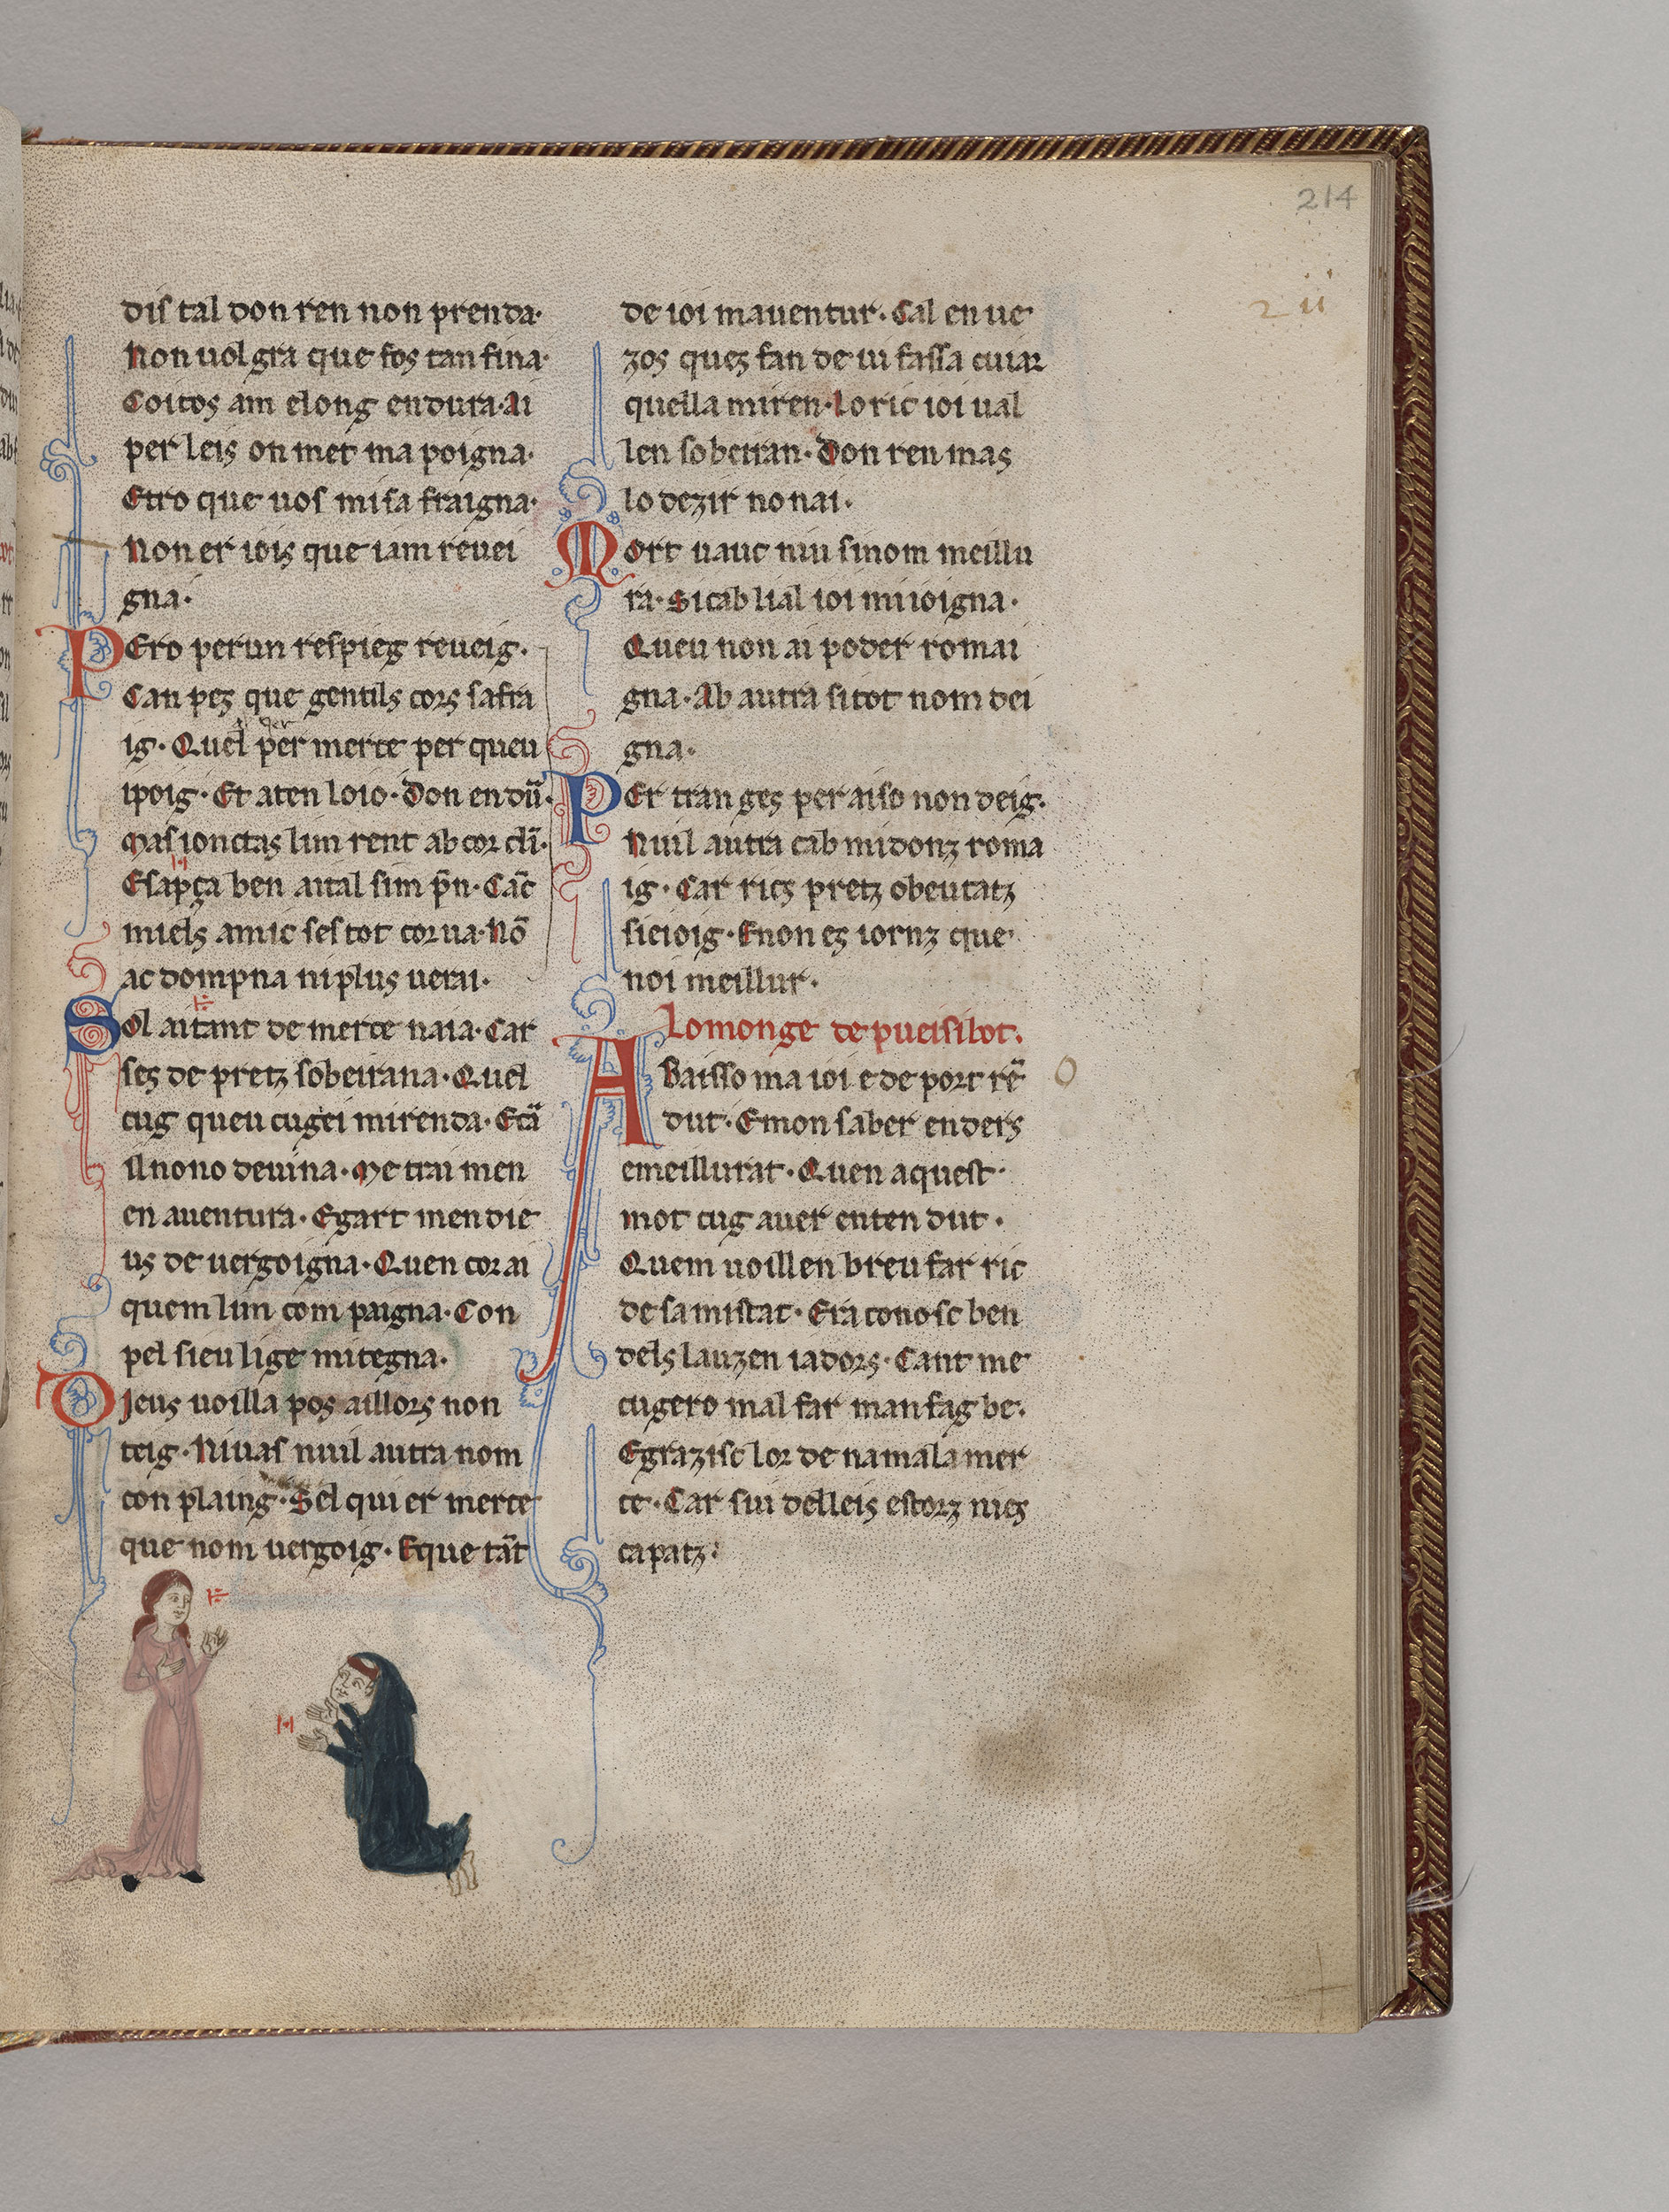 214
2 ii
dis tal don ren non prenda·
Non uol gra que fos tan fina·
Coitos am elong endura· Ai
per leis on met ma poigna·
Etro que uos misa fraigna·
Non er iois que iam reuei
gna·
PEro perun respieg reueig·
Can pez que gentils cors safra
ig· Quel per merce per queu
ipoig· Et aten loio· Don en dū·
Mas ionctas lim rent ab cor clī·
E sapça ben aital sim p̄n· Cāc
miels amic ses tot cor ua· Nō
ac dompna ni plus uerai·
SOl aitant de merce naia· Car
ses de pretz sobeirana· Quel
cug queu cugei mirenda· Ecā
il nono deuina· Me trai men
en auentura· Egart men die
us de uergoigna· Quen cor ai
quem lim com paigna· Con
pel sieu lige mitegna·
DIeus uoilla pos aillors non
teig· Niuas nuil autra nom
con plaing· Sel qui er merce
que nom uergoig· Eque tāt
de ioi mauentur· Cal en ue
zos quez fan de iu fassa cuiar
quella miren· Lo ric ioi ual
len sobeiran· Don ren mas
lo dezir no nai·
MOrt uauc uiu sinom meillu
ra· Sicab lial ioi mi ioigna·
Queu non ai poder romai
gna· Ab autra si tot nom dei
gna·
PEr tran ges per aiso non deig·
Nuil autra cab midonz roma
ig· Car rics pretz obeutatz
sieioig· Enon es iornz que
noi meillur·
Lo monge de pueisibot.
ABaisso ma ioi e de port rē
dut· Emon saber enders
emeillurat· Quen aquest
mot cug auer enten dut·
Quem uoillen breu far ric
de samistat· Era conosc ben
dels lauzen iadors· Cant me
cugero mal far man fag be·
Egrazisc lor de na mala mer
ce· Car sui delleis estorz nies
capatz·